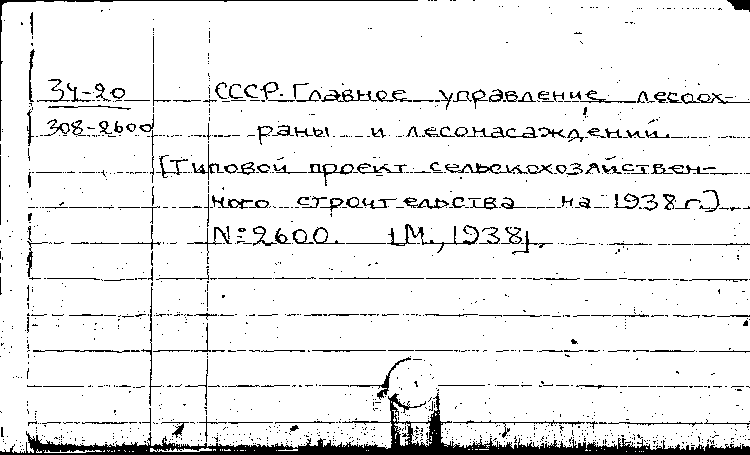 34-20
308-2600
СССР. Главное управление лесоох-
раны и лесонасаждений.
[Типовой проект сельскохозяйствен-
ного строительства на 1938 г.].
№2600. [М., 1938].